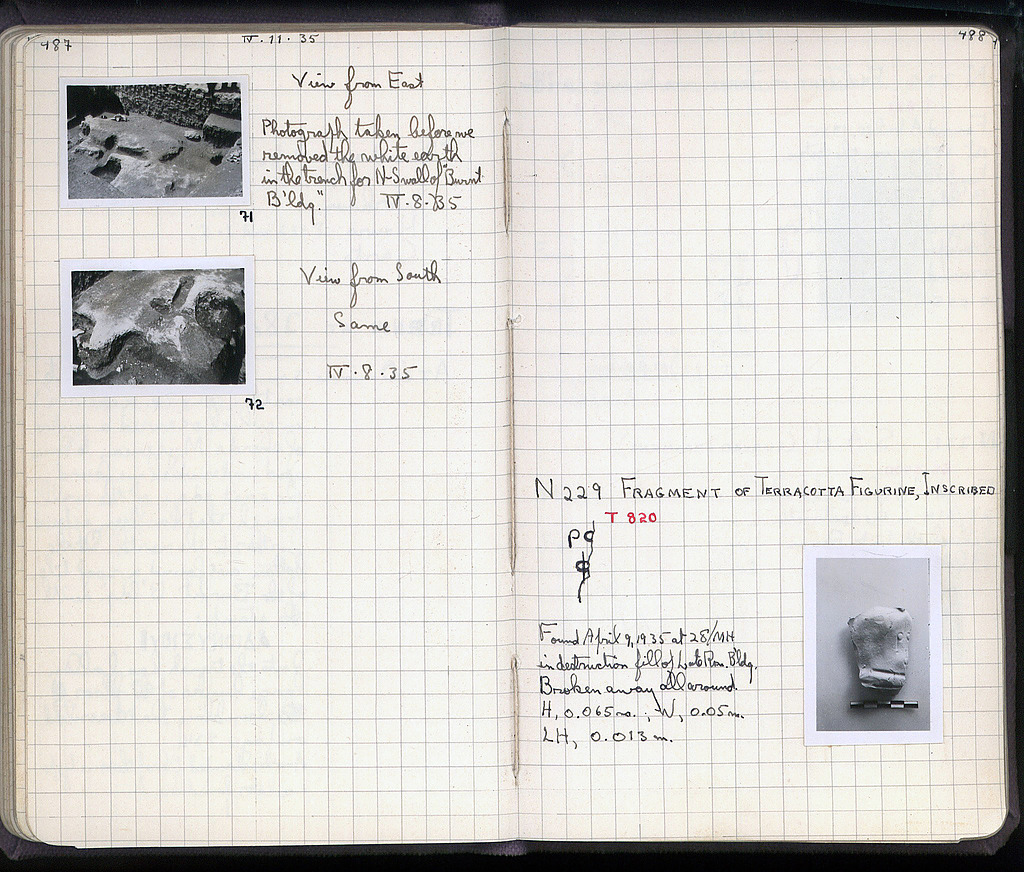 487
IV.11.35
View from East
Photograph taken before we
removed the white earth
in the trench for N-S wall of "Burnt
B'ldg."   IV.8.35
71
View from South
Same
IV.8.35
72
488
N 229 FRAGMENT OF TERRACOTTA FIGURINE, INSCRIBED
T 820
Found April 9, 1935 at 28/MH
in destruction fill of Late Rom. Bldg.
Broken away all around.
H, 0.065 m.; W, 0.05 m.
LH, 0.013 m.